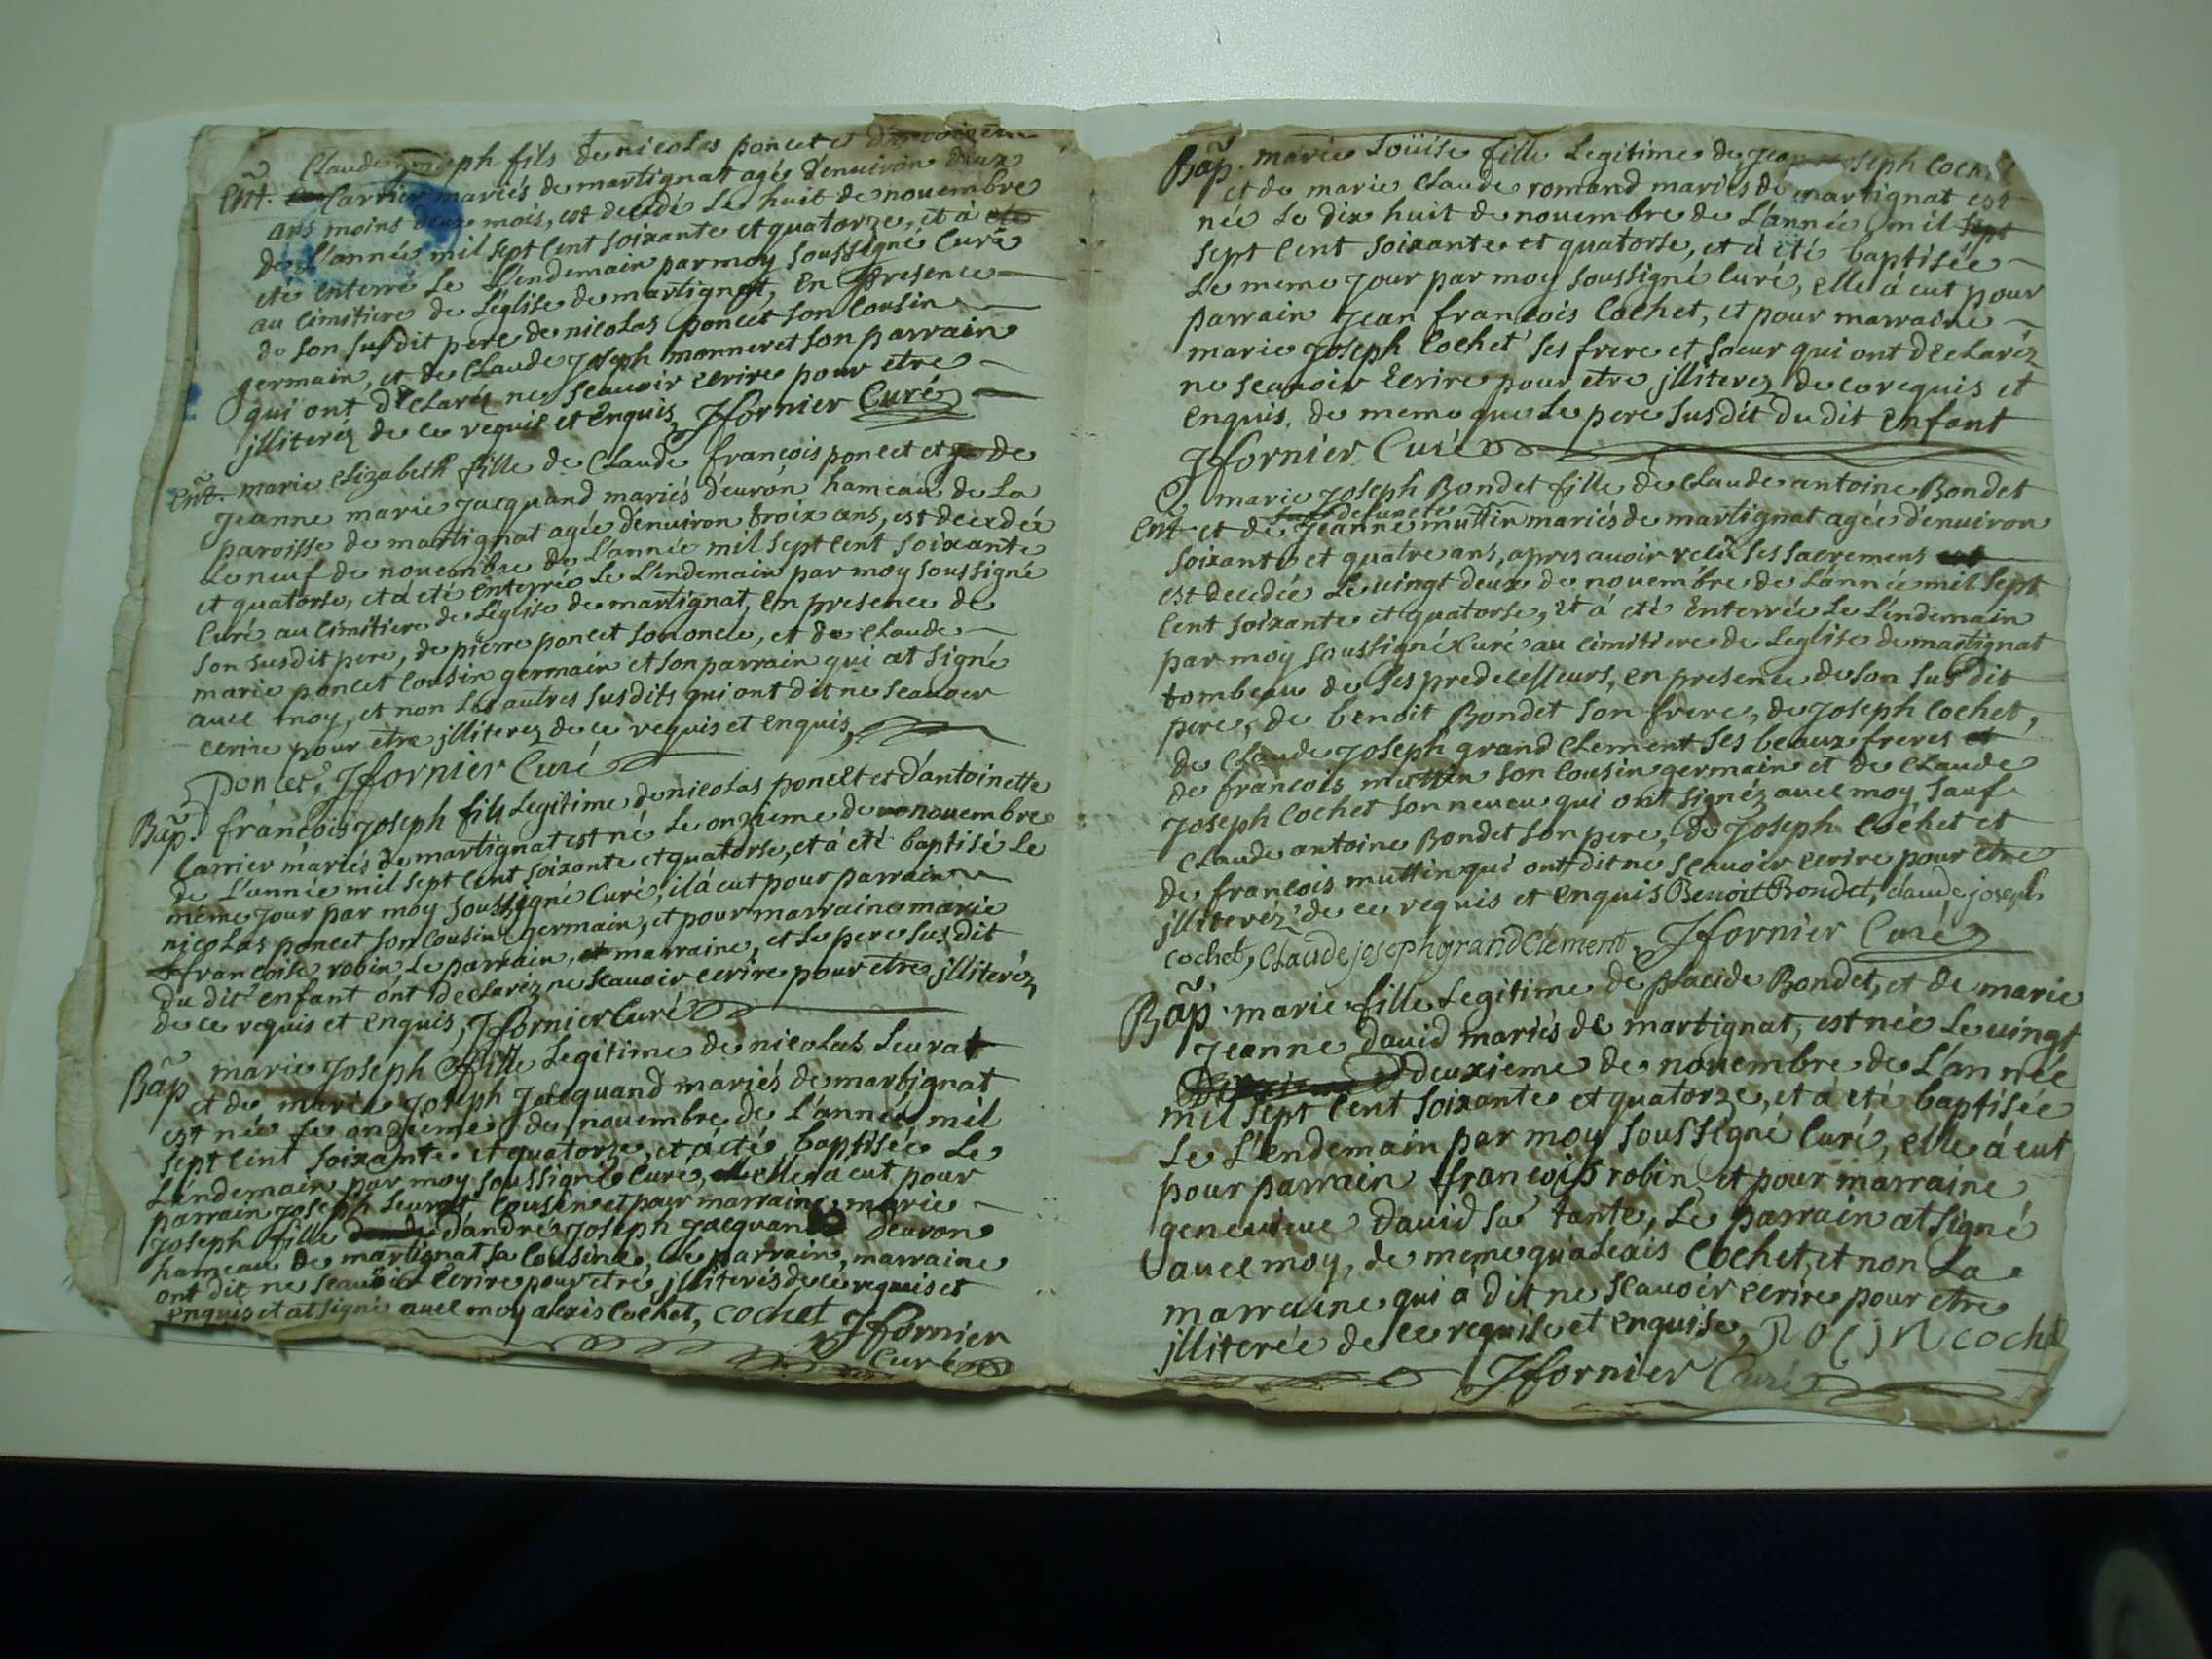 Claude joseph fils de nicolas poncet et d'antoinette
Ent. Carrier mariés de martignat agé d'enuiron deux
ans moins deux mois, est decedé Le huit de nouembre
de L'année mil sept Cent soixante et quatorze, et à
eté enterré Le L'endemain par moy soussigné Curé
au Cimitiere de L'eglise de martignat, En presence
de son susdit pere de nicolas poncet son Cousin
germain, et de Claude joseph monneret son parrain
qui ont déclaréz ne scauoir ecrire pour etre
jlliteréz de ce requis et Enquis, Jfornier Curé
Ent. marie elizabeth fille de Claude françois poncet et de
jeanne marie jacquand mariés d'euron hameau de La
paroisse de martignat agée d'enuiron troix ans, est decedée
Le neuf de nouembre de L'année mil sept Cent soixante
et quatorse, et à eté enterrée Le L'endemain par moy soussigné
Curé au Cimitiere de L'eglise de martignat, En presence de
son susdit pere, de pierre poncet son oncle, et de Claude
marie poncet Cousin germain et son parrain qui at signé
auec moy, et non Les autres susdits qui ont dit ne scauoir
ecrire pour etre jlliterez de ce requis et enquis,
Poncet, Jfornier Curé
Bap. françois joseph fils Legitime de nicolas poncet et d'antoinette
Carrier mariés de martignat est né Le onzieme de nouembre
de L'année mil sept Cent soixante et quatorse, et à été baptisé Le
meme jour par moy soussigné Curé, il à eut pour parrain
nicolas poncet son Cousin germain, et pour marraine marie
françoise robin, Le parrain, marraine, et Le pere susdit
du dit enfant ont declaréz ne scauoir ecrire pour etre jlliteréz
de ce requis et enquis, Jfornier Curé
Bap marie joseph fille Legitime de nicolas Leurat
et de marie joseph jacquand mariés de martignat
est née Le onzieme de nouembre de L'année mil
sept Cent soixante et quatorse, et à été baptisée Le
L'endemain par moy soussigné Curé, elle à eut pour
parrain joseph Leurat Cousin et pour marraine marie
joseph fille d'andre joseph jacquand d'euron
hameau de martignat sa Cousine, Le parrain, marraine
ont dit ne scauoir ecrire pour etre jlliterés de ce requis et
enquis et at signé auec moy alexis Cochet, cochet
Jfornier
Curé
Bap. marie Loüise fille Legitime de jean joseph Cochet
et de marie Claude romand mariés de martignat est
née Le dix huit de nouembre de L'année mil sept
sept Cent soixante et quatorse, et à été baptisée
Le meme jour par moy soussigné Curé, elle à eut pour
parrain jean françois Cochet, et pour marraine
marie joseph Cochet ses frere et soeur qui ont declaréz
ne scauoir ecrire pour etre jlliterez de ce requis et
enquis, de meme que Le pere susdit du dit enfant
Jfornier Curé
marie joseph Bondet fille de Claude antoine Bondet
defuncte
Ent et de jeanne muttin mariés de martignat agée d'enuiron
soixante et quatre ans, apres auoir reçû ses sacremens est
est decedée Le uingt deux de nouembre de L'année mil sept
Cent soixante et quatorse, et à eté Enterrée Le L'endemain
par moy soussigné Curé au cimitiere de L'eglise de martignat
tombeau de ses predecesseurs, en presence de son susdit
pere, de benoit Bondet son frere, de joseph Cochet,
de Claude joseph grand Clement ses beaux freres et
de francois muttin son Cousin germain et de Claude
joseph Cochet son neueu qui ont signéz auec moy, sauf
Claude antoine Bondet son pere, de joseph Cochet et
de françois muttin qui ont dit ne scauoir ecrire pour etre
jlliteréz de ce requis et enquis Benoit Bondet, claude joseph
cochet, Claude joseph grand Clement, Jfornier Curé
Bap. marie fille Legitime de placide Bondet, et de marie
jeanne dauid mariés de martignat, est née Le uingt
deuxieme de nouembre de L'année
mil sept Cent soixante et quatorze, et à eté baptisée
Le L'endemain par moy soussigné Curé, elle à eut
pour parrain françois robin, et pour marraine
geneuieue dauid sa tante, Le parrain at signé
auec moy, de meme qu'alexis Cochet, et non La
marraine qui à dit ne scauoir ecrire pour etre
jlliterée de ce requise et enquise, Robin coche
Jfornier Curé